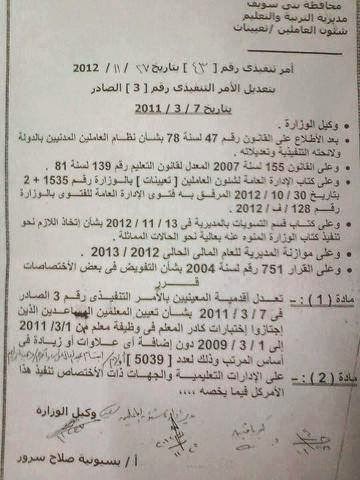 محافظة بنى سويف
مديرية التربية والتعليم
شئون العاملين / تعيينات
أمر تنفيذى رقم [ ٤٣ ] بتاريخ ٢٧ / ١١ / 2012
بتعديل الأمر التنفيذى رقم [ 3 ] الصادر
بتاريخ 7 / 3 / 2011
• وكيل الوزارة .
• بعد الأطلاع على القانون رقم 47 لسنة 78 بشأن نظام العاملين المدنيين بالدولة
ولائحته التنفيذية وتعديلاته .
• وعلى القانون 155 لسنة 2007 المعدل لقانون التعليم رقم 139 لسنة 81 .
• وعلى كتاب الإدارة العامة لشئون العاملين [ تعيينات ] بالوزارة رقم 1535 + 2
بتاريخ 30 / 10 / 2012 المرفق به فتوى الإدارة العامة للفتوى بالوزارة
رقم 128 / ف / 2012 .
• وعلى كتاب قسم التسويات بالمديرية فى 13 / 11 / 2012 بشأن إتخاذ اللازم نحو
تنفيذ كتاب الوزارة المنوه عنه بعالية نحو الحالات المماثلة .
• وعلى موازنة المديرية للعام المالى الحالى 2012 / 2013 .
• وعلى القرار 751 لسنة 2004 بشأن التفويض فى بعض الأختصاصات
قرر
مادة ( 1 ) : ـ تعدل أقدمية المعينيين بالأمر التنفيذى رقم 3 الصادر
فى 7 / 3 / 2011 بشأن تعيين المعلمين المساعدين الذين
إجتازوا إختبارات كادر المعلم فى وظيفة معلم من 3/1/ 2011
إلى 1 / 3 / 2009 دون إضافة أى علاوات أو زيادة فى
أساس المرتب وذلك لعدد [ 5039 ]
مادة ( 2 ) : ـ على الإدارات التعليمية والجهات ذات الأختصاص تنفيذ هذا
الأمر كل فيما يخصه ....
وكيل الوزارة
أ / بسيونية صلاح سرور